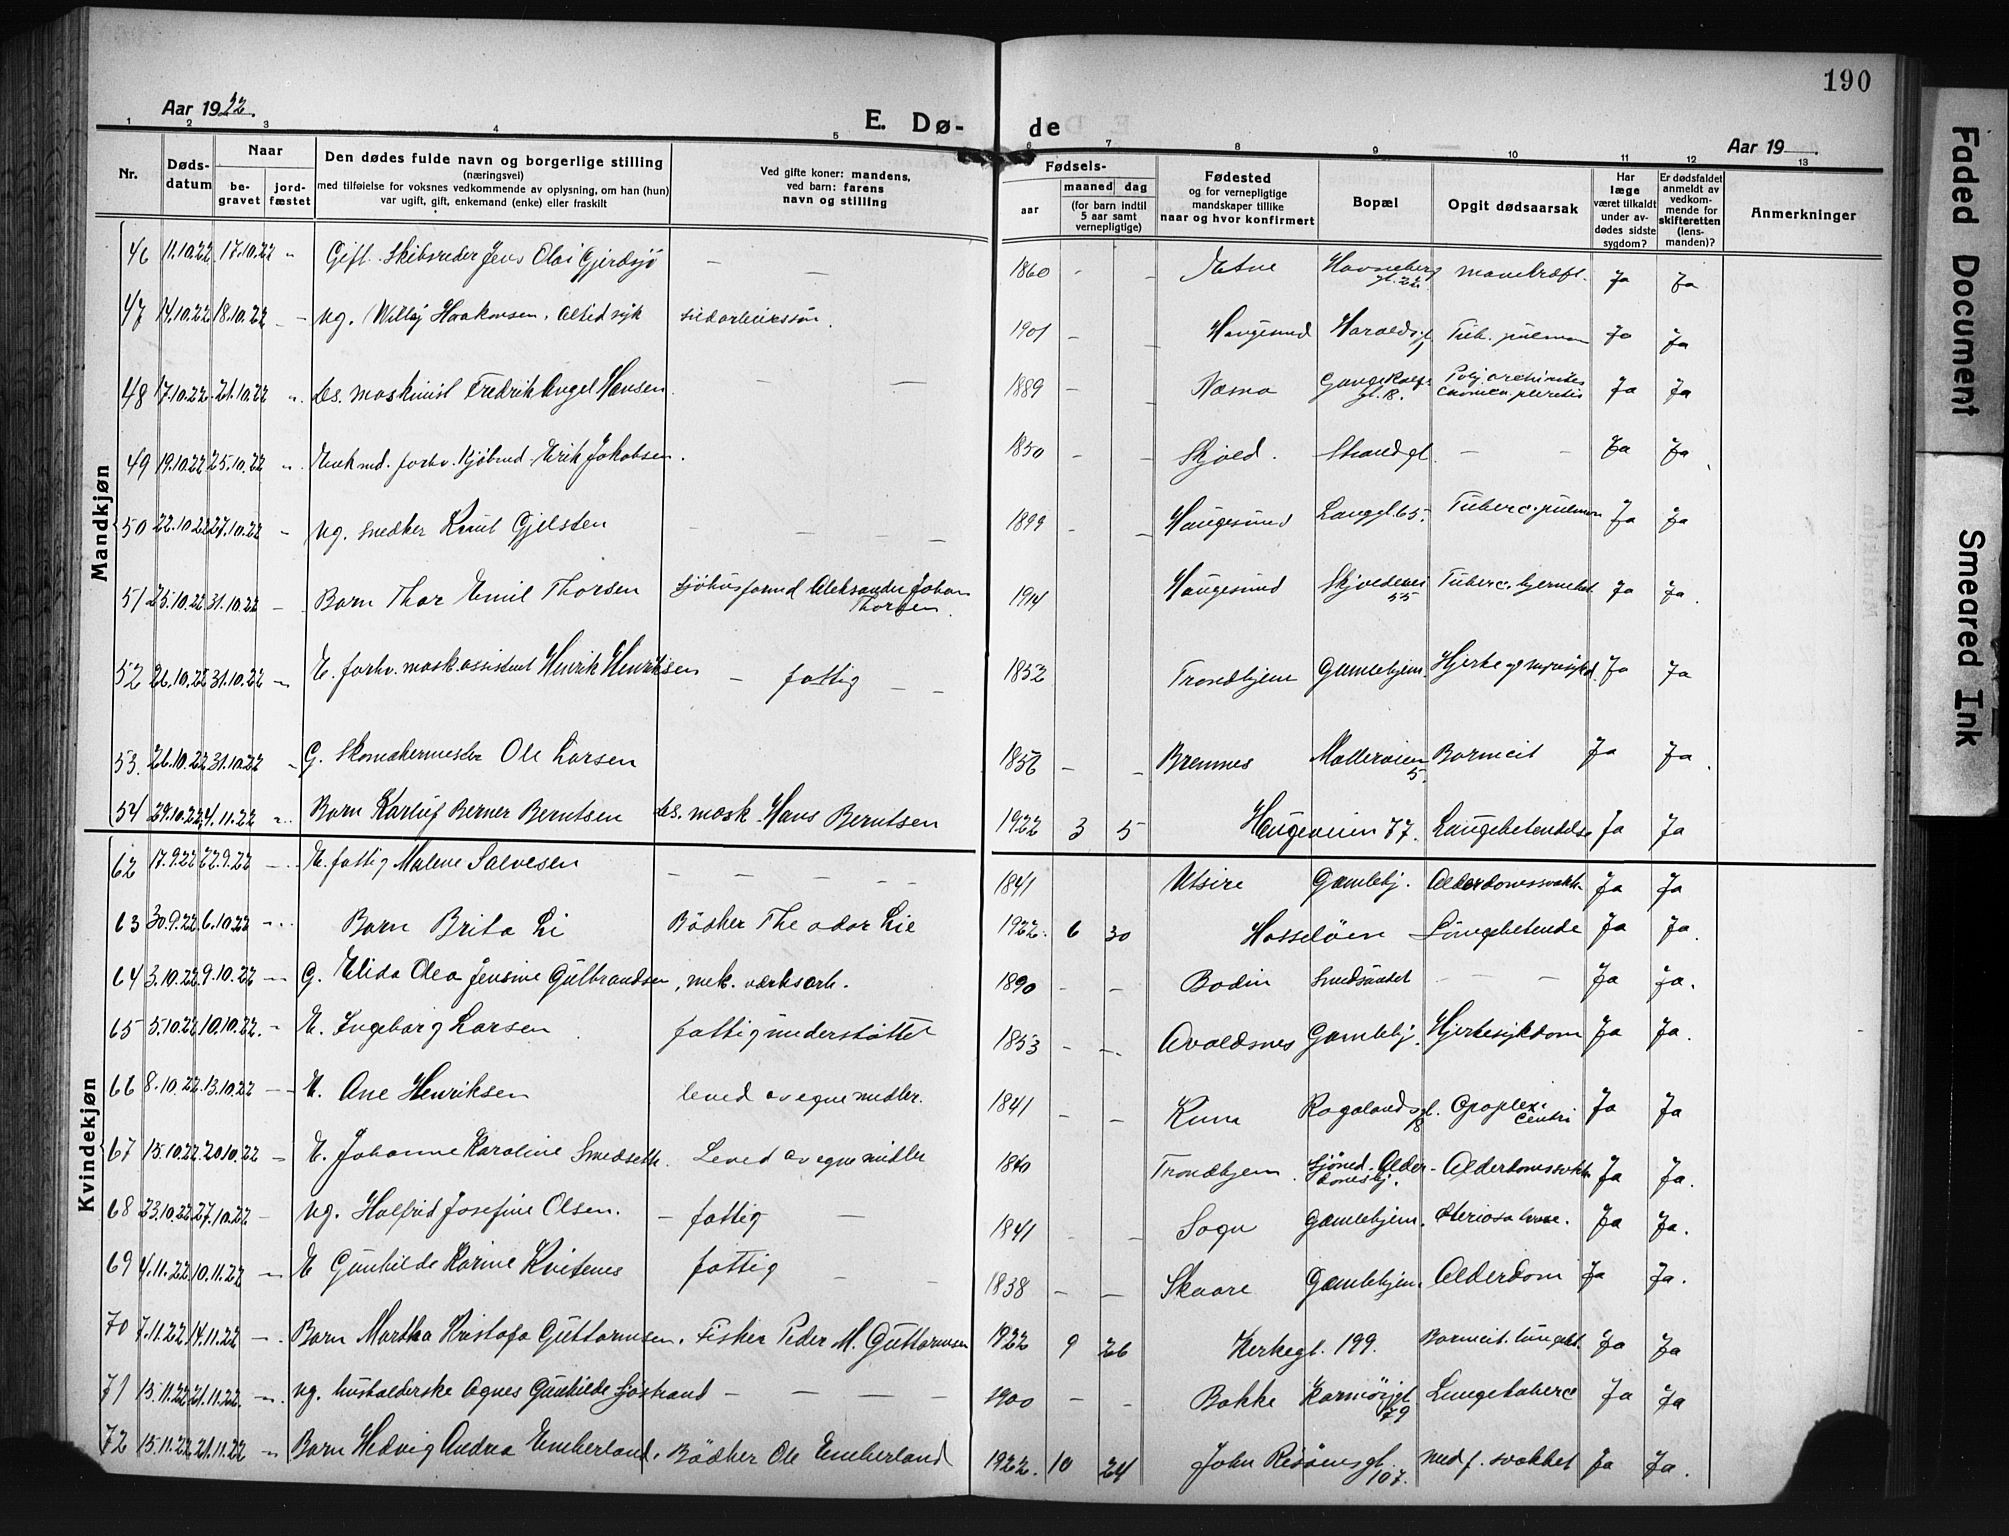 190
Aar 1922.
E. Dø- de
Aar 19
1 2 3 4 5 6 7 8 9 10 11 12 13
Nr. Døds-datum Naar be-gravet jord-fæstet Den dødes fulde navn og borgerlige stilling (næringsvei) med tilføielse for voksnes vedkommende av oplysning, om han (hun) var ugift, gift, enkemand (enke) eller fraskilt Ved gifte koner: mandens, ved barn: farens navn og stilling Fødsels- aar maaned dag (for barn indtil 5 aar samt vernepligtige) Fødested og for vernepligtige mandskaper tillike naar og hvor konfirmert Bopæl Opgit dødsaarsak Har læge været tilkaldt under av-dødes sidste sygdom? Er dødsfaldet anmeldt av vedkom-mende for skifteretten (lens-manden)? Anmerkninger
Mandkjøn
46 11.10.22 17.10.22 " Gift. Skibsreder Jens Olai Gjerdsjö — — 1860 - - Etne Havneberg gt. 22. Ja Ja
47 14.10.22 18.10.22 - - Ug. Willy Haakonsen. Altid syk sildarbeiderssön. 1901 - - Haugesund Haraldsgt. Tub. pulmon Ja Ja
48 17.10.22 21.10.22 " Ds. maskinist Fredrik Angel Hansen — — 1889 - Nesna Gange Rolfs gt. 18. Ja Ja
49 19.10.22 25.10.22 " Enkmd. forhv. kjøbmd Erik Jakobsen. 1850 - - Skjold. Strandgt. - - Ja Ja
50 22.10.22 27.10.22 - Ug. snedker Knut Gjelsten — — — 1899 - - Haugesund Langgt. 65. Tuberc. pulmon Ja Ja
51 25.10.22 31.10.22 - Barn Thor Emil Thorsen Sjöhusformd Aleksander Johan Thorsen. 1914 Haugesund Skjoldeveien 55 Tuberc. hjernehet Ja Ja.
52 26.10.22 31.10.22 " E. forhv. mask.assistent Henrik Henriksen - fattig - - 1852 Trondhjem Gamlehjem. Hjerte og nyresykd. Ja Ja
53. 26.10.22 31.10.22 " G. Skomakermester Ole Larsen 1856 - - Bremnes Møllerveien 5. Barmeit Ja Ja.
54 29.10.22 4.11.22 " Barn Karluf Berner Berntsen Ds. mask. Hans Berntsen 1922 3 5 Haugeveien 77. Lungebetendelse Ja Ja
Kvindekjøn
62 17.9.22 22.9.22 - E. fattig Malene Salvesen - - - - - 1841 Utsire Gamlehj. Alderdomssvakh. Ja Ja
63 30.9.22 6.10.22 - Barn Brita Li Bödker Theodor Lie 1922. 6 30 Hasseløen Lungebetende Ja Ja.
64 3.10.22 9.10.22 - G. Elida Olea Jensine Gulbrandsen, mek. værksarb. 1890 - - Bodin Smedsundet - - Ja Ja.
65 5.10.22 10.10.22. - E. Ingeborg Larsen fattigunderstöttet 1853 - - Avaldsnes Gamlehj. Hjertesykdom Ja Ja.
66 8.10.22 13.10.22 - E. Ane Henriksen leved av egne midler. 1841 - - Rogalandsgt. 18 Apoplexi Ja Ja
67 15.10.22 20.10.22 - E. Johanne Karoline Smedseth. Leved av egne midler 1840 Trondhjem. Sjömd. Alderdomshj. - Alderdomssvakh. Ja Ja.
68 23.10.22 27.10.22 - Ug. Halfrid Josefine Olsen. - fattig - 1841 - - Sogn Gamlehjem. Ja Ja.
69 4.11.22 10.11.22 - E Gunhilde Karine Kvitenes fattig - - 1838 - - Skaare Gamlehjem. Alderdom Ja Ja.
70 7.11.22. 14.11.22 - Barn Martha Kristofa Guttormsen. Fisker Peder M. Guttormsen 1922 9 26 Kirkegt. 199. Ja Ja
71 15.11.22 21.11.22. - Ug. husholderske Agnes Gunhilde Sjöstrand - - - - 1900 - - Bakke Karmöygt. 79 Lungetuberc Ja Ja
72 15.11.22 21.11.22 " Barn Hedvig Andrea Emberland. Bödker Ole Emberland 1922. 10 24 John Risöensgt. 107. med f. svakhet Ja Ja.
Faded Document
Smeared Ink